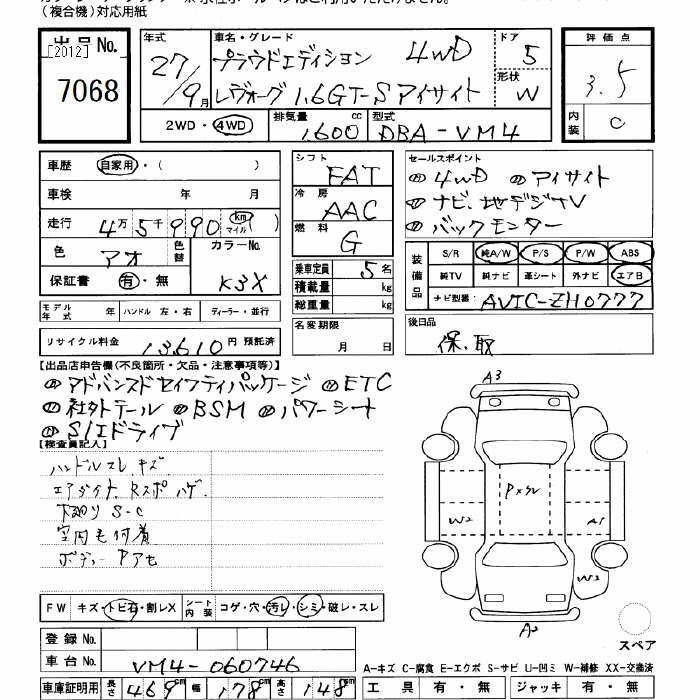 (複合機)対応用紙
出品No.
[2012]
7068
年式
27/9月
車名・グレード
プラウドエディション 4WD
レヴォーグ 1.6GT-Sアイサイト
ドア
5
形状
W
2WD・4WD
排気量
1,600
cc
型式
DBA-VM4
評価点
3.5
内装
C
車歴 自家用・( )
車検 年 月
走行 4万5千990 km マイル ( )
色 アオ 色替
カラーNo.
K3X
保証書 有・無
モデル年式 年 ハンドル 左・右 ディーラー・並行
リサイクル料金 13,610円 預託済
シフト
FAT
冷房
AAC
燃料
G
乗車定員 5名
積載量 kg
総重量 kg
名変期限
月 日
セールスポイント
4WD アイサイト
ナビ、地デジTV
バックモンター
装備品
S/R 純A/W P/S P/W ABS
純TV 純ナビ 革シート 外ナビ エアB
ナビ型番 AVIC-ZH0777
後日品
保、取
【出品店申告欄(不良箇所・欠品・注意事項等)】
アドバンスドセイフティパッケージ ETC
社外テール BSM パワーシート
SIドライブ
【検査員記入】
ハンドルスレ、キズ
下廻り S-C
FW キズ・トビ石・割レX
シート内装 コゲ・穴・汚レ・シミ・破レ・スレ
登録No.
車台No. VM4-060746
車庫証明用 長さ 469cm 幅 178cm 高さ 148cm
A3
W2
A1
スペア
A-キズ C-腐食 E-エクボ S-サビ U-凹ミ W-補修 XX-交換済
工具 有・無 ジャッキ 有・無